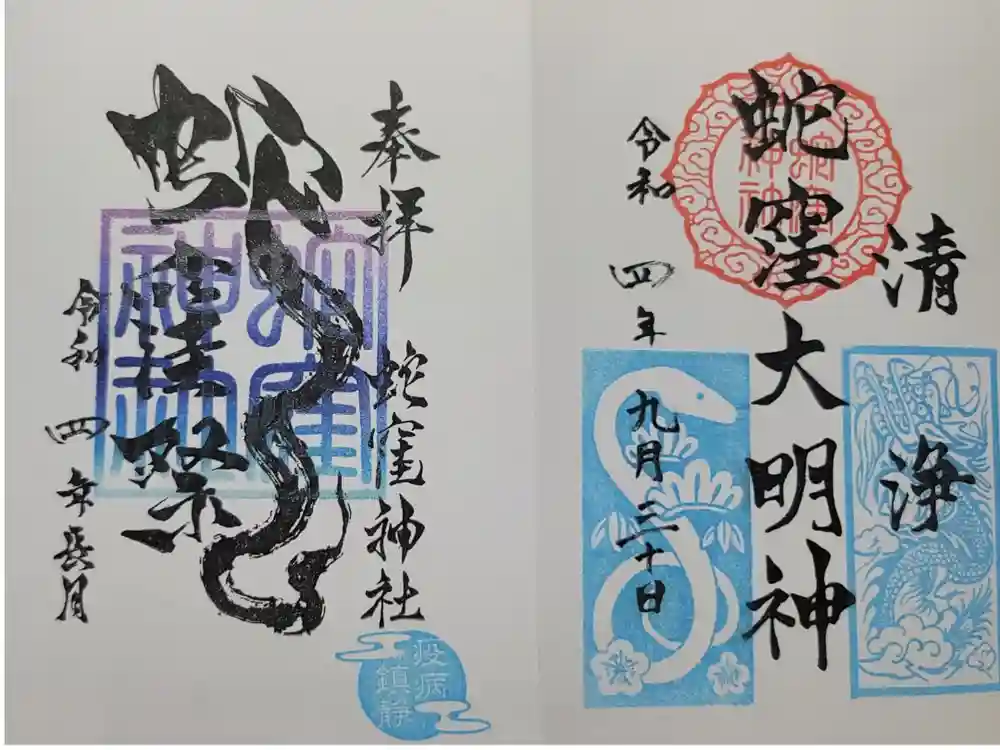 奉拝
蛇窪神社
蛇窪祭
令和四年長月
蛇窪神社
疫病
鎮静
清浄
蛇窪大明神
令和四年
九月三十日